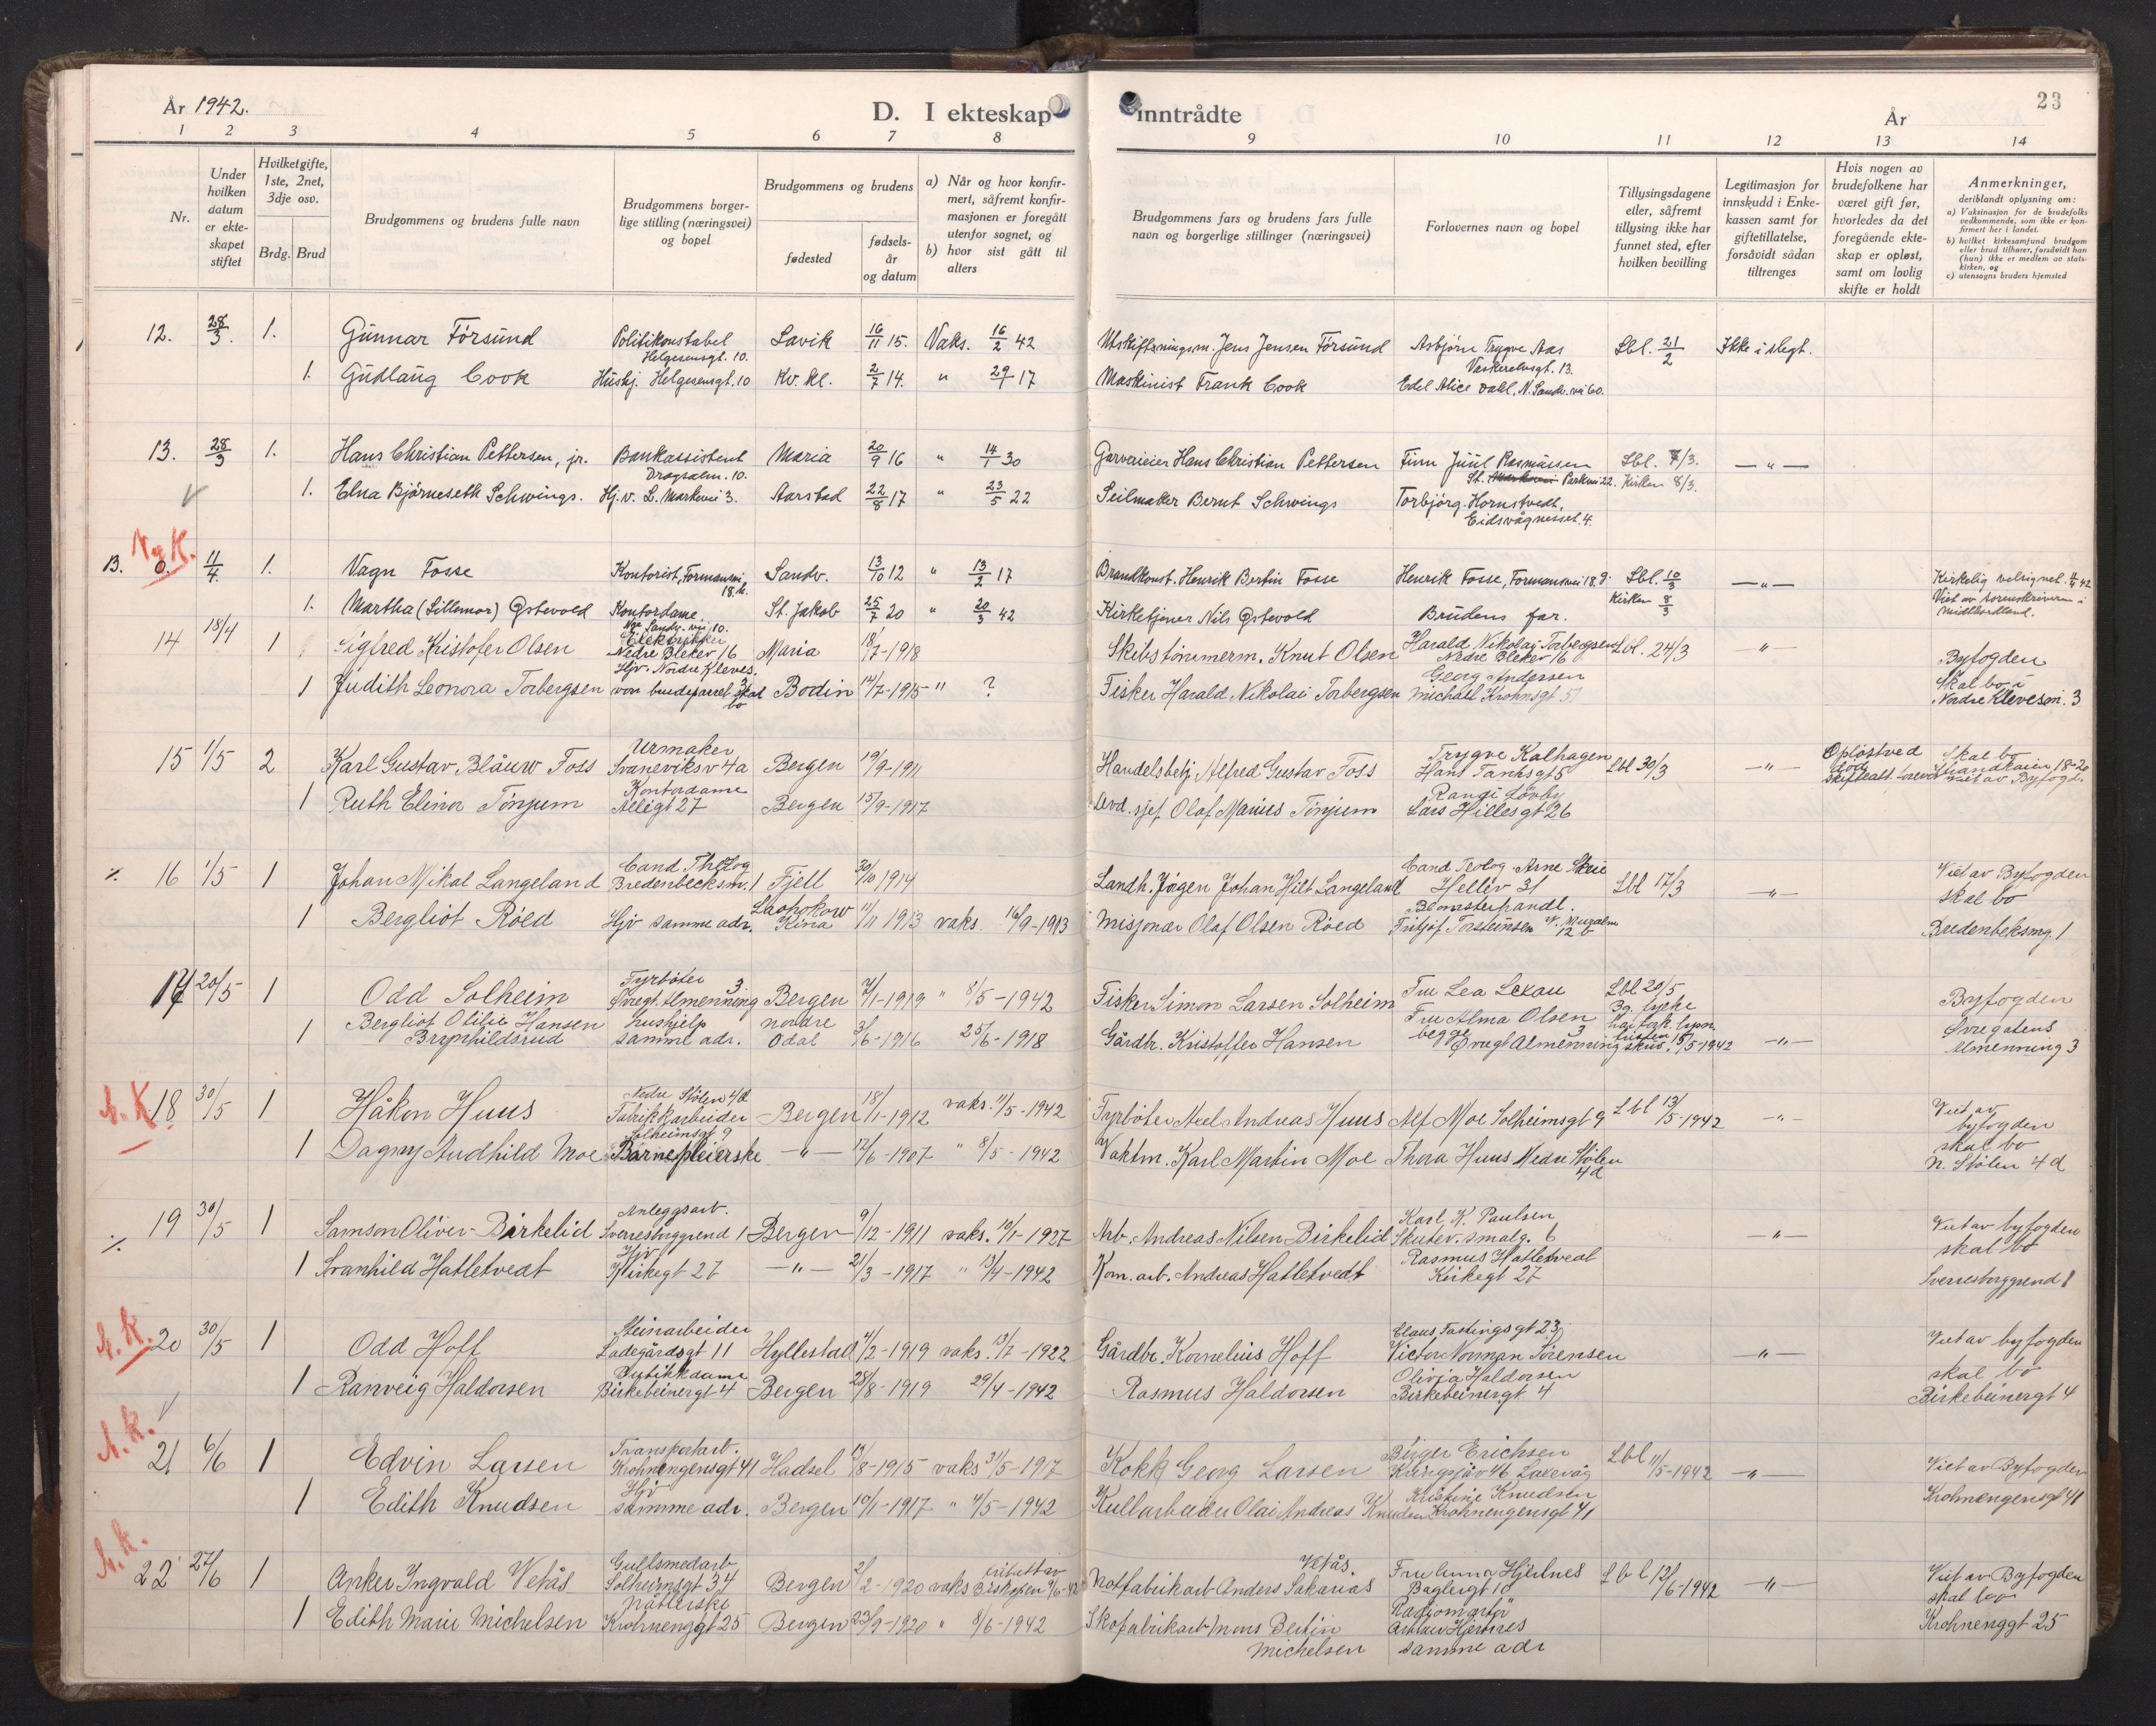 År 1942.
D. I ekteskap inntrådte
År
23
1 2 3 4 5 6 7 8 9 10 11 12 13 14
Nr.
Under hvilken datum er ekteskapet stiftet
Hvilketgifte, 1ste, 2net, 3dje osv.
Brdg. Brud
Brudgommens og brudens fulle navn
Brudgommens borgerlige stilling (næringsvei) og bopel
Brudgommens og brudens
fødested
fødselsår og datum
a) Når og hvor konfirmert, såfremt konfirmasjonen er foregått utenfor sognet, og
b) hvor sist gått til alters
Brudgommens fars og brudens fars fulle navn og borgerlige stillinger (næringsvei)
Forlovernes navn og bopel
Tillysingsdagene eller, såfremt tillysing ikke har funnet sted, efter hvilken bevilling
Legitimasjon for innskudd i Enkekassen samt for giftetillatelse, forsåvidt sådan tiltrenges
Hvis nogen av brudefolkene har været gift før, hvorledes da det foregående ekteskap er opløst, samt om lovlig skifte er holdt
Anmerkninger, deriblandt oplysning om:
a) Vaksinasjon for de brudefolks vedkommende, som ikke er konfirmert her i landet.
b) hvilket kirkesamfund brudgom eller brud tilhører, forsåvidt han (hun) ikke er medlem av statskirken, og
c) utensogns bruders hjemsted
12. 28/3. 1. Gunnar Førsund Politikonstabel Helgesensgt. 10. Lavik 16/11 15. Vaks. 16/2 42 Utskiftningsm. Jens Jensen Førsund Asbjørn Trygve Aas Lbl. 21/2 Ikke i slegt.
1. Gudlaug Cook Hushj. Helgesensgt. 10 Kv. kl. 2/7 14. " 29/1 17 Maskinist Frank Cook Edel Alice Dahl, N. Sandv. vei 60.
13. 28/3 1. Hans Christian Pettersen, jr. Bankassistent Dragsalm. 10. Maria 20/9 16 " 14/1 30 Garverieier Hans Christian Pettersen Finn Juul Rasmussen St. Parkvei 22. Lbl. 7/3. Kirken 8/3. — " —
1. Elna Bjørneseth Schwings. Hj. v. L. Markevei 3. Aarstad 22/8 17 " 23/5 22 Seilmaker Bernt Schwings Torbjørg Hornstvedt, Eidsvågnesset. 4.
N.g.K.
B. 6. 11/4. 1. Vagn Fosse Kontorist, Formannsvei, 18. Sandv. 13/10 12 " 13/2 17 Brandkonst. Henrik Bertin Fosse Henrik Fosse, Formannsvei 18.g. Lbl. 10/3 Kirken 8/3 — " — Kirkelig velsignet 11/4 42 Viet av sorenskriveren i Midthordland.
1. Martha (Lillemor) Østevold Kontordame Nye Sandv. vei 10. St. Jakob 25/7 20 " 20/3 42 Kirketjener Nils Østevold Brudens far.
14 18/4 1 Sigfred Kristofer Olsen Elektriker Nedre Bleker 16 Maria 18/7-1918 Skibstømmerm. Knut Olsen Harald Nikolay Torbergsen Nedre Bleker 16 Lbl. 24/3 " Byfogden Skal bo i Nordre Klevesm. 3
1 Judith Leonora Torbergsen Hjv. Nordre Kleves. Bodin 14/7-1915 " ? Fisker Harald Nikolai Torbergsen Georg Andersen Michael Krohnsgt 51
15 1/5 2 Karl Gustav Blauw Foss Urmaker Svaneviksv 4a Bergen 19/9-1911 Handelsbetj Alfred Gustav Foss Trygve Kalhagen Hans Tanksgt 5 Lbl 30/3 — " — Opløst ved død Skal bo Strandkaien 18-20 viet av Byfogd.
1 Ruth Elinor Tønjum Kontordame Allégt 27 Bergen 15/9-1917 Avd. sjef Olaf Marius Tønjum Lars Hillesgt 26
16 1/5 1 Johan Mikal Langeland Cand Theolog Bredenbecksm. 1 Fjell 30/10 1914 Landh. Jørgen Johan Hilt Langeland Cand Teolog Arne Skeie Hellev 31 Lbl 17/3 " Viet av Byfogden skal bo
1 Bergliot Røed Hjv samme adr. Laohokow Kina 11/11 1913 vaks. 16/9-1913 Misjonær Olaf Olsen Røed Blomsterhandl. Fritjof Torsteinsen 12 b Bredenbeksmg. 1
17 20/5 1 Odd Solheim Fyrbøter Øvregt. Almenning 3 Bergen 2/1-1919 " 8/5-1942 Fisker Simon Larsen Solheim Fru Lea Lexau Lbl 20/5 Byfogden
1 Bergliot Otilie Hansen Brynhildsrud hushjelp samme adr. nordre Odal 3/6-1916 25/6-1918 Gårdbr. Kristoffer Hansen Fru Alma Olsen begge Øvregt Almenning 3 5/5-1942 — " — Øvregatens Almenning 3
N.K. 18 30/5 1 Håkon Huus Nedre Stølen 4/d Fabrikkarbeider Bergen 18/1-1912 vaks. 11/5-1942 Fyrbøter Axel Andreas Huus Alf Moe Solheimsgt 9 Lbl 13/5-1942 — " — Viet av byfogden skal bo N. Stølen 4 d
1 Dagny Audhild Moe Solheimsgt 9 Barnepleierske — " — 12/6-1907 " 8/5-1942 Vaktm. Karl Martin Moe Thora Huus Nedre Stølen 4d
19 30/5 1 Samson Oliver Birkelid Anleggsarb. Sverresborggrend 1 Bergen 9/12-1911 vaks. 10/1-1927 Arb. Andreas Nilsen Birkelid Karl K. Paulsen Skutev. smalg. 6 — " — Viet av byfogden skal bo Sverresborggrend 1
1 Svanhild Hatletvedt Hjv Kirkegt 27 — " — 21/3-1917 " 13/4-1942 Kom. arb. Andreas Hatletvedt Rasmus Hatletvedt Kirkegt 27
N.K. 20 30/5 1 Odd Hoff Steinarbeider Ladegårdsgt 11 Hyllestad 4/2-1919 vaks. 13/7-1922 Gårdbr. Kornelius Hoff Claus Fastingsgt 23 Victor Norman Sørensen — " — Viet av byfogden skal bo Birkebeinergt 4
1 Ranveig Haldorsen Butikkdame Birkebeinergt 4 Bergen 28/8-1919 29/4-1942 Rasmus Haldorsen Olivia Haldorsen Birkebeinergt 4
N.K. 21 6/6 1 Edvin Larsen Transportarb. Krohnengensgt 41 Hadsel 19/8-1915 vaks 31/5-1917 Kokk Georg Larsen Birger Erichsen Kringsjåv 46 Laksevåg Lbl 11/5-1942 — " — Viet av Byfogden Krohnengensgt 41
1 Edith Knudsen Hjv samme adr. Bergen 10/1-1917 " 4/5-1942 Kullarbeider Olai Andreas Knudsen Kristine Knudsen Krohnengensgt 41
N.K. 22 27/6 1 Anker Ingvald Vetås Gullsmedarb Solheimsgt 34 Bergen 2/2-1920 vaks Biskopen Notfabrikarb Anders Sakarias Vetås. Fru Anna Hjertnes Baglergt 10 Lbl 12/6-1942 — " — Viet av Byfogden skal bo Krohnenggt 25
1 Edith Marie Michelsen Krohnenggt 25 Bergen 23/9-1920 " 8/6-1942 Skofabrikarb Mons Bertin Michelsen Hjertnes samme adr